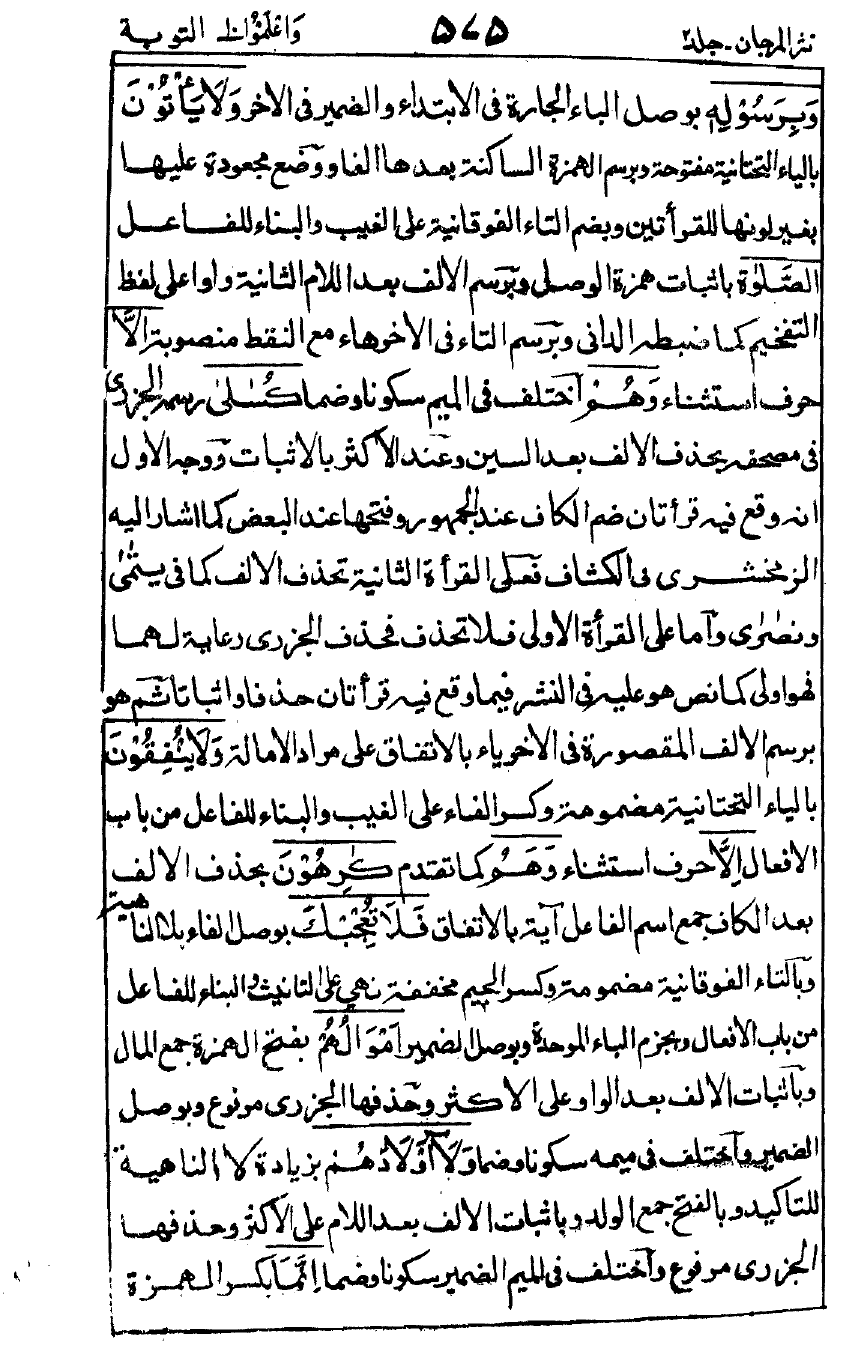 نثر المرجان - جلد٢ ۵۷۵ وَاعْلَمُوْا ١٠ التوبة
وَبِرَسُوْلِهٖ بوصل الباء الجارة فى الابتداء والضمير فى الاٰخر وَلَا يَأْتُوْنَ
بالياء التحتانية مفتوحة وبرسم الهمزة الساكنة بعدها الفا ووضع مجعودة عليها
بغير لونها للقرأتين وبضم التاء الفوقانية على الغيب والبناء للفاعل
الصَّلٰوةَ باثبات همزة الوصل وبرسم الالف بعد اللام الثانية واوا على لفظ
التفخيم كما ضبطه الدانى وبرسم التاء فى الاٰخر هاء مع النقط منصوبة اِلَّا
حرف استثناء وَهُمْ اختلف فى الميم سكونا وضما كُسَالٰى رسمه الجزرى
فى مصحفه بحذف الالف بعد السين وعند الاكثر بالاثبات ووجه الاول
انه وقع فيه قرأتان ضم الكاف عند الجمهور وفتحها عند البعض كما اشار اليه
الزمخشرى فى الكشاف فعلى القرأة الثانية تحذف الالف كما فى يتٰمٰى
ونصٰرٰى واما على القرأة الاولى فلا تحذف فحذف الجزرى رعاية لهما
فهو اولى كما نص هو عليه فى النشر فيما وقع فيه قرأتان حذفا واثباتا ثم هو
برسم الالف المقصورة فى الاٰخر ياء بالاتفاق على مراد الامالة وَلَا يُنْفِقُوْنَ
بالياء التحتانية مضمومة وكسر الفاء على الغيب والبناء للفاعل من باب
الافعال اِلَّا حرف استثناء وَهُمْ كما تقدم كٰرِهُوْنَ بحذف الالف
بعد الكاف جمع اسم الفاعل آية بالاتفاق فَلَا تُعْجِبْكَ بوصل الفاء بلا الناهية
وبالتاء الفوقانية مضمومة وكسر الجيم مخففة نهى على التانيث والبناء للفاعل
من باب الافعال وبجزم الباء الموحدة وبوصل الضمير اَمْوَالُهُمْ بفتح الهمزة جمع المال
وباثبات الالف بعد الواو على الاكثر وحذفها الجزرى مرفوع وبوصل
الضمير واختلف فى ميمه سكونا وضما وَلَآ اَوْلَادُهُمْ بزيادة لا الناهية
للتاكيد وبالفتح جمع الولد وباثبات الالف بعد اللام على الاكثر وحذفها
الجزرى مرفوع واختلف فى الميم الضمير سكونا وضما اِنَّمَا بكسر الهمزة